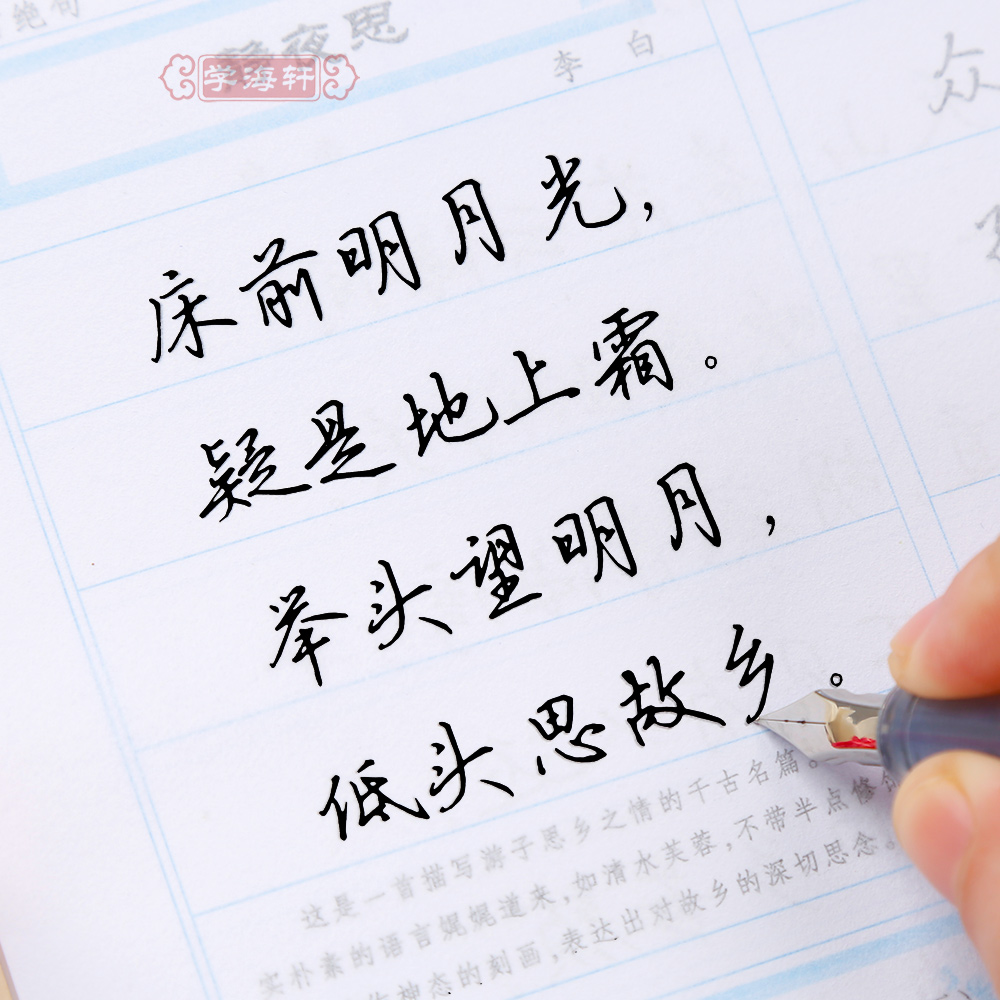 绝句
静夜思
学海轩
李 白
众
床前明月光,
疑是地上霜。
举头望明月,
低头思故乡。
这是一首描写游子思乡之情的千古名篇。
实朴素的语言娓娓道来,如清水芙蓉,不带半点修饰
神态的刻画,表达出对故乡的深切思念。